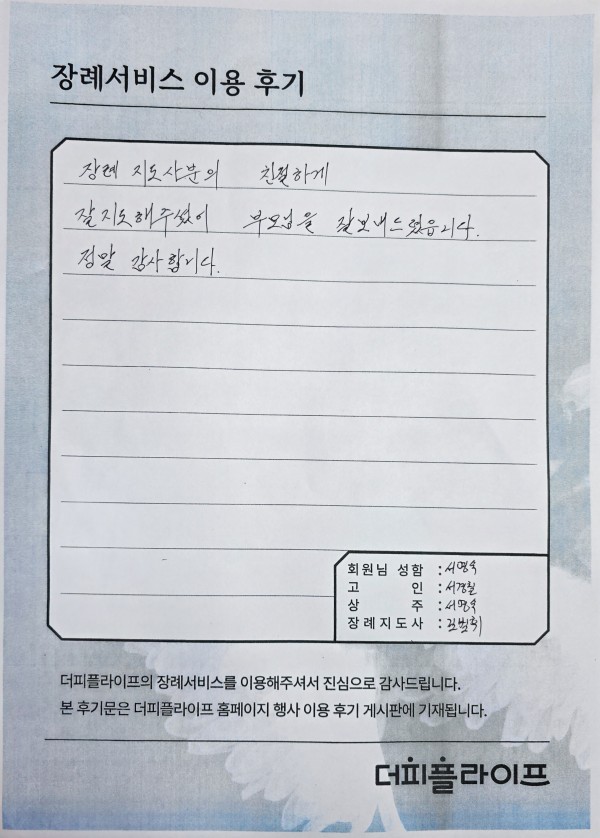 장례서비스 이용 후기
장례 지도사분의 친절하게
잘지도해주셨어 부모님을 잘보내드렸습니다.
정말 감사합니다.
회원님 성함 : 서영숙
고 인 : 서경철
상 주 : 서영숙
장례지도사 :
더피플라이프의 장례서비스를 이용해주셔서 진심으로 감사드립니다.
본 후기문은 더피플라이프 홈페이지 행사 이용 후기 게시판에 기재됩니다.
더피플라이프